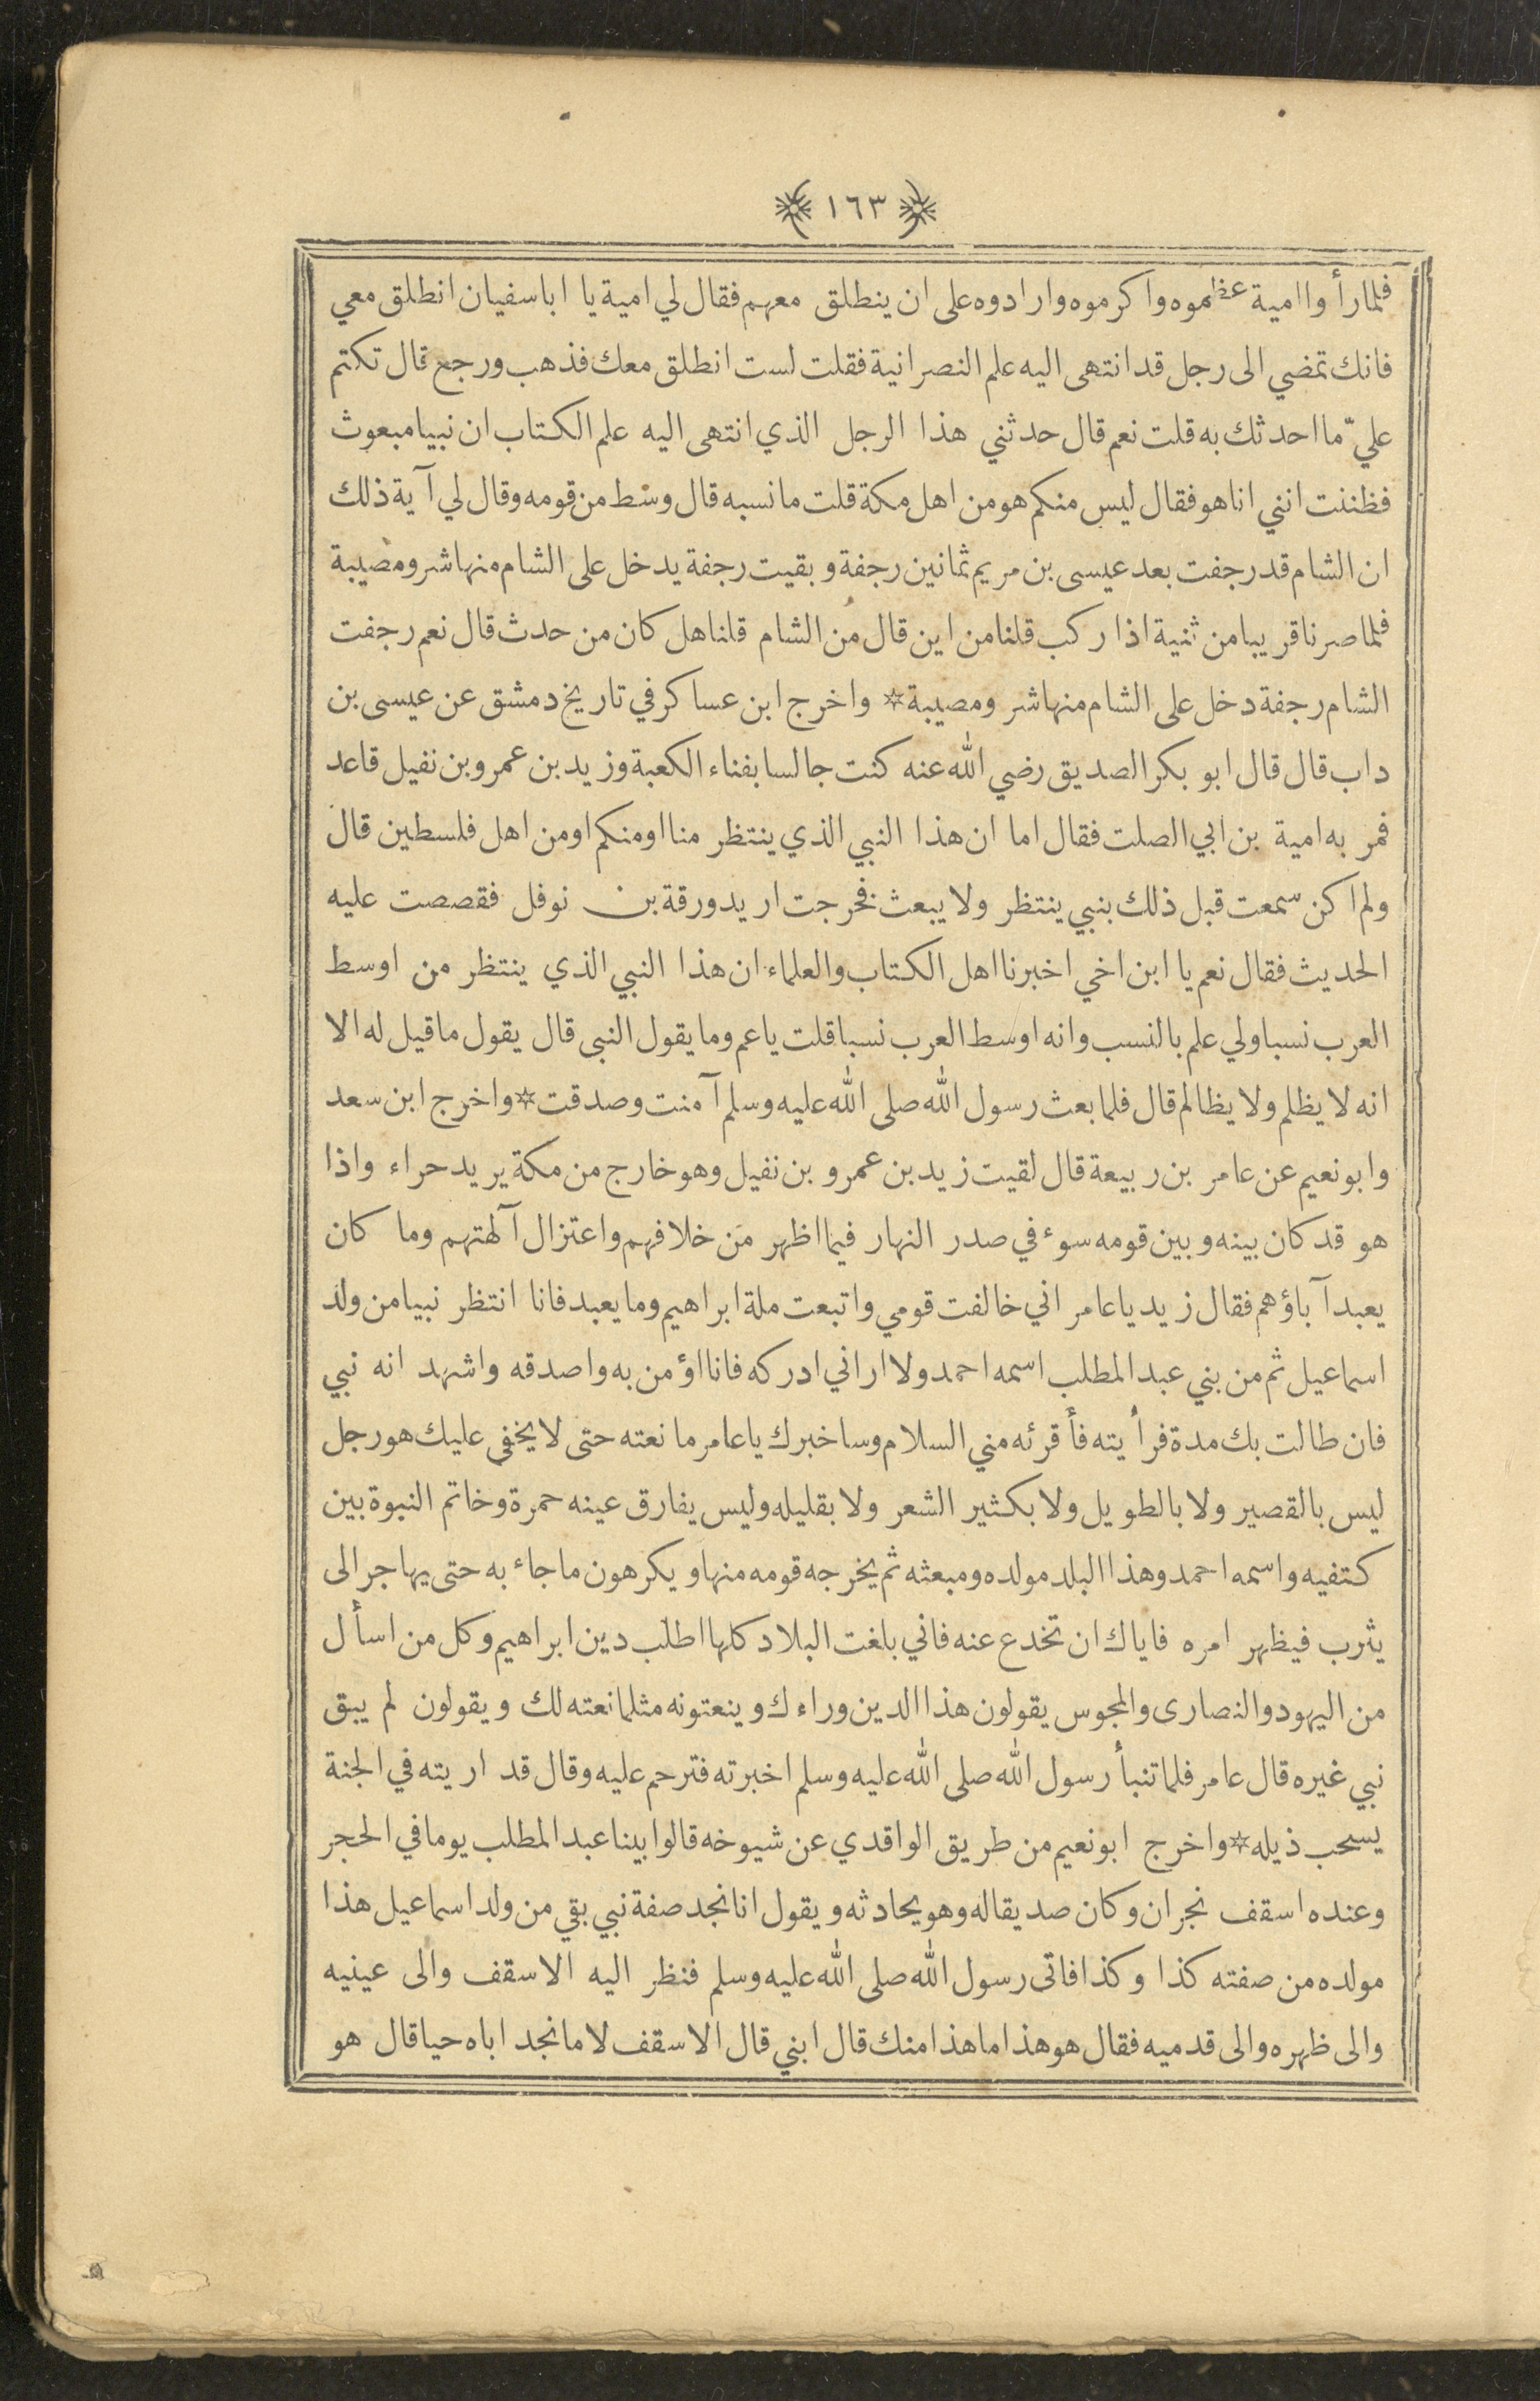 ١٦٣
فلما رأوا امية عظموه واكرموه وارادوه على ان ينطلق معهم فقال لي امية يا ابا سفيان انطلق معي
فانك تمضي الى رجل قد انتهى اليه علم النصرانية فقلت لست انطلق معك فذهب ورجع قال تكتم
عليّ ما احدثك به قلت نعم قال حدثني هذا الرجل الذي انتهى اليه علم الكتاب ان نبيا مبعوث
فظننت انني انا هو فقال ليس منكم هو من اهل مكة قلت ما نسبه قال وسط من قومه وقال لي آية ذلك
ان الشام قد رجفت بعد عيسى بن مريم ثمانين رجفة وبقيت رجفة يدخل على الشام منها شر ومصيبة
فلما صرنا قريبا من ثنية اذا ركب قلنا من اين قال من الشام قلنا هل كان من حدث قال نعم رجفت
الشام رجفة دخل على الشام منها شر ومصيبة * واخرج ابن عساكر في تاريخ دمشق عن عيسى بن
داب قال قال ابو بكر الصديق رضي الله عنه كنت جالسا بفناء الكعبة وزيد بن عمرو بن نفيل قاعد
فمر به امية بن ابي الصلت فقال اما ان هذا النبي الذي ينتظر منا او منكم او من اهل فلسطين قال
ولم اكن سمعت قبل ذلك بنبي ينتظر ولا يبعث فخرجت اريد ورقة بن نوفل فقصصت عليه
الحديث فقال نعم يا ابن اخي اخبرنا اهل الكتاب والعلماء ان هذا النبي الذي ينتظر من اوسط
العرب نسبا ولي علم بالنسب وانه اوسط العرب نسبا قلت يا عم وما يقول النبي قال يقول ما قيل له الا
انه لا يظلم ولا يظالم قال فلما بعث رسول الله صلى الله عليه وسلم آمنت وصدقت * واخرج ابن سعد
وابو نعيم عن عامر بن ربيعة قال لقيت زيد بن عمرو بن نفيل وهو خارج من مكة يريد حراء واذا
هو قد كان بينه وبين قومه سوء في صدر النهار فيما اظهر من خلافهم واعتزال آلهتهم وما كان
يعبد آباؤهم فقال زيد يا عامر اني خالفت قومي واتبعت ملة ابراهيم وما يعبد فانا انتظر نبيا من ولد
اسماعيل ثم من بني عبد المطلب اسمه احمد ولا اراني ادركه فانا اؤمن به واصدقه واشهد انه نبي
فان طالت بك مدة فرأيته فأقرئه مني السلام وساخبرك يا عامر ما نعته حتى لا يخفى عليك هو رجل
ليس بالقصير ولا بالطويل ولا بكثير الشعر ولا بقليله وليس يفارق عينه حمرة وخاتم النبوة بين
كتفيه واسمه احمد وهذا البلد مولده ومبعثه ثم يخرجه قومه منها ويكرهون ما جاء به حتى يهاجر الى
يثرب فيظهر امره فاياك ان تخدع عنه فاني بلغت البلاد كلها اطلب دين ابراهيم وكل من اسأل
من اليهود والنصارى والمجوس يقولون هذا الدين وراءك وينعتونه مثلما نعته لك ويقولون لم يبق
نبي غيره قال عامر فلما تنبأ رسول الله صلى الله عليه وسلم اخبرته فترحم عليه وقال قد اريته في الجنة
يسحب ذيله * واخرج ابو نعيم من طريق الواقدي عن شيوخه قالوا بينا عبد المطلب يوما في الحجر
وعنده اسقف نجران وكان صديقا له وهو يحادثه ويقول انا نجد صفة نبي بقي من ولد اسماعيل هذا
مولده من صفته كذا وكذا فاتى رسول الله صلى الله عليه وسلم فنظر اليه الاسقف والى عينيه
والى ظهره والى قدميه فقال هو هذا ما هذا منك قال ابني قال الاسقف لا ما نجد اباه حيا قال هو